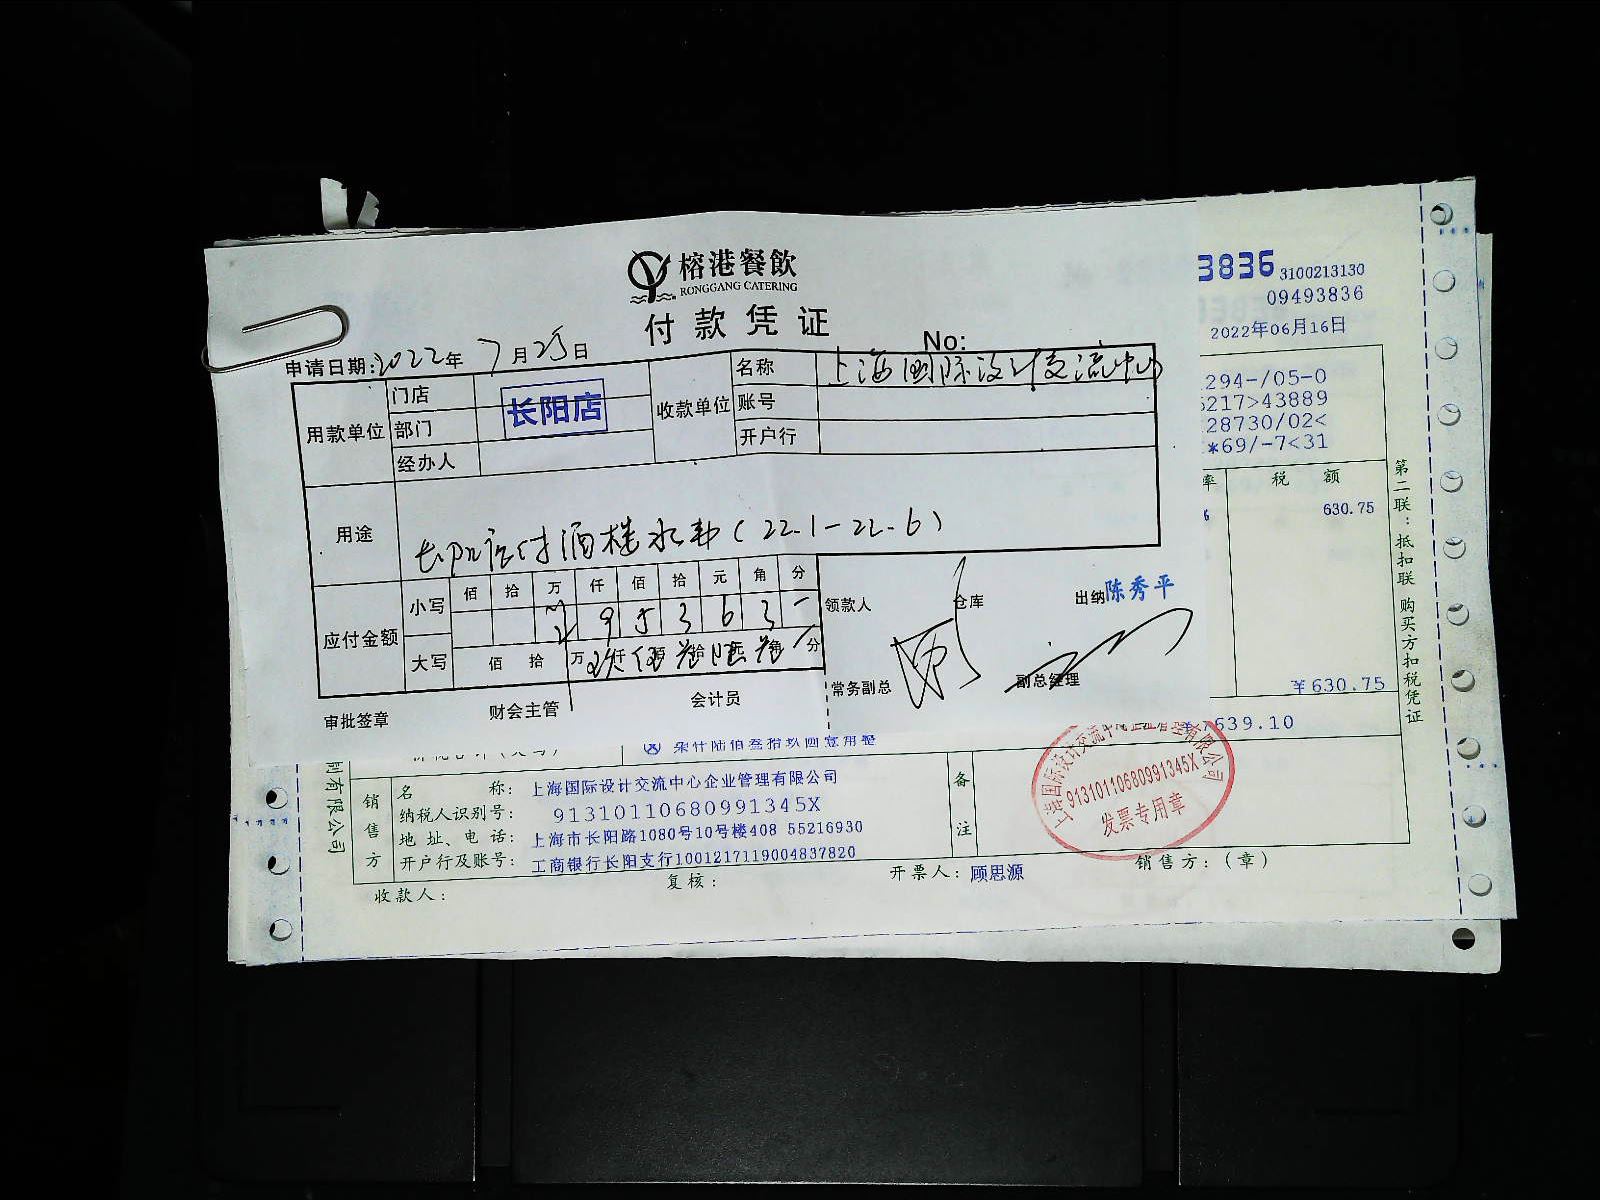 榕港餐飲
RONGGANG CATERING
付款凭证
No:
申请日期:2022年7月25日
用款单位
门店
部门
经办人
长阳店
收款单位
名称 上海国际设计交流中心
账号
开户行
用途
长阳店付酒楼水费(22.1-22.6)
应付金额
小写
佰 拾 万 仟 佰 拾 元 角 分
9 5 3 6 3 -
大写
佰 拾 万 仟 佰 拾 元 角 分
领款人
仓库
出纳 陈秀平
常务副总
副总经理
审批签章
财会主管
会计员
3836 3100213130
09493836
2022年06月16日
294-/05-0
217>43889
28730/02<
*69/-7<31
率 税 额
630.75
¥630.75
639.10
第二联：抵扣联 购买方扣税凭证
柒仟陆佰叁拾玖圆壹角整
制有限公司
销售方
名 称： 上海国际设计交流中心企业管理有限公司
纳税人识别号： 91310110680991345X
地址、电话： 上海市长阳路1080号10号楼408 55216930
开户行及账号： 工商银行长阳支行1001217119004837820
备注
上海国际设计交流中心企业管理有限公司
91310110680991345X
发票专用章
收款人：
复核：
开票人：顾思源
销售方：(章)